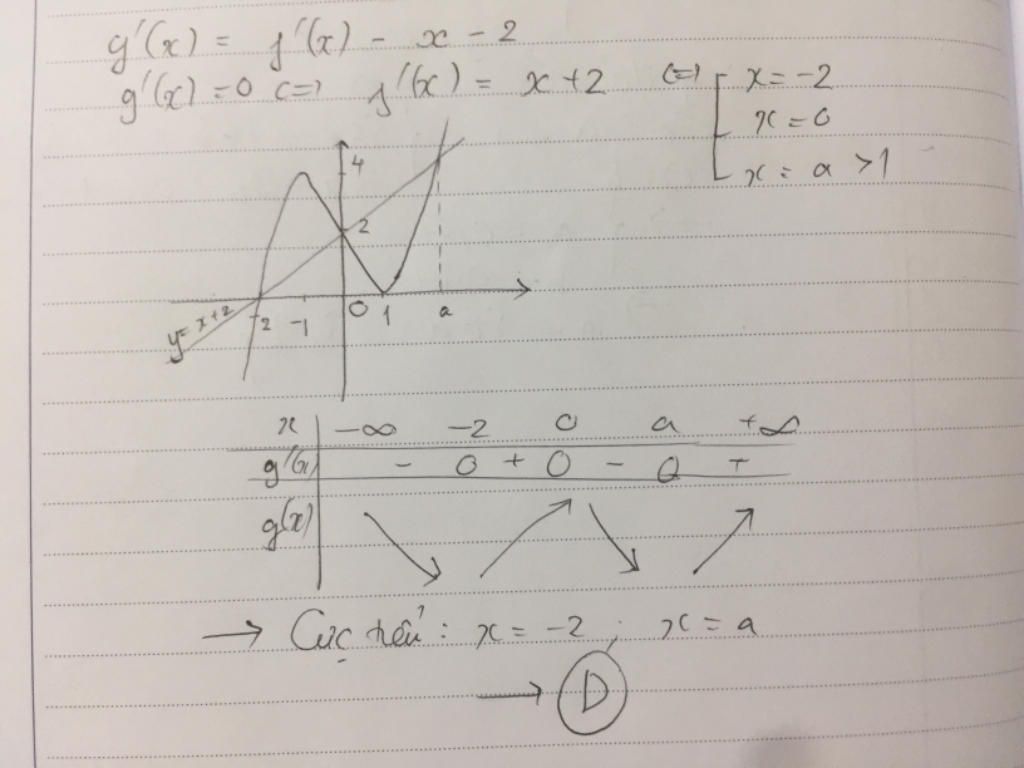 g'(x) = f'(x) - x - 2
g'(x) = 0 <=> f'(x) = x + 2 <=> [ x = -2
x = 0
x = a > 1
4
2
-2 -1 0 1 a
y = x + 2
x -∞ -2 0 a +∞
g'(x) - 0 + 0 - 0 +
g(x)
→ Cực tiểu : x = -2 ; x = a
→ D